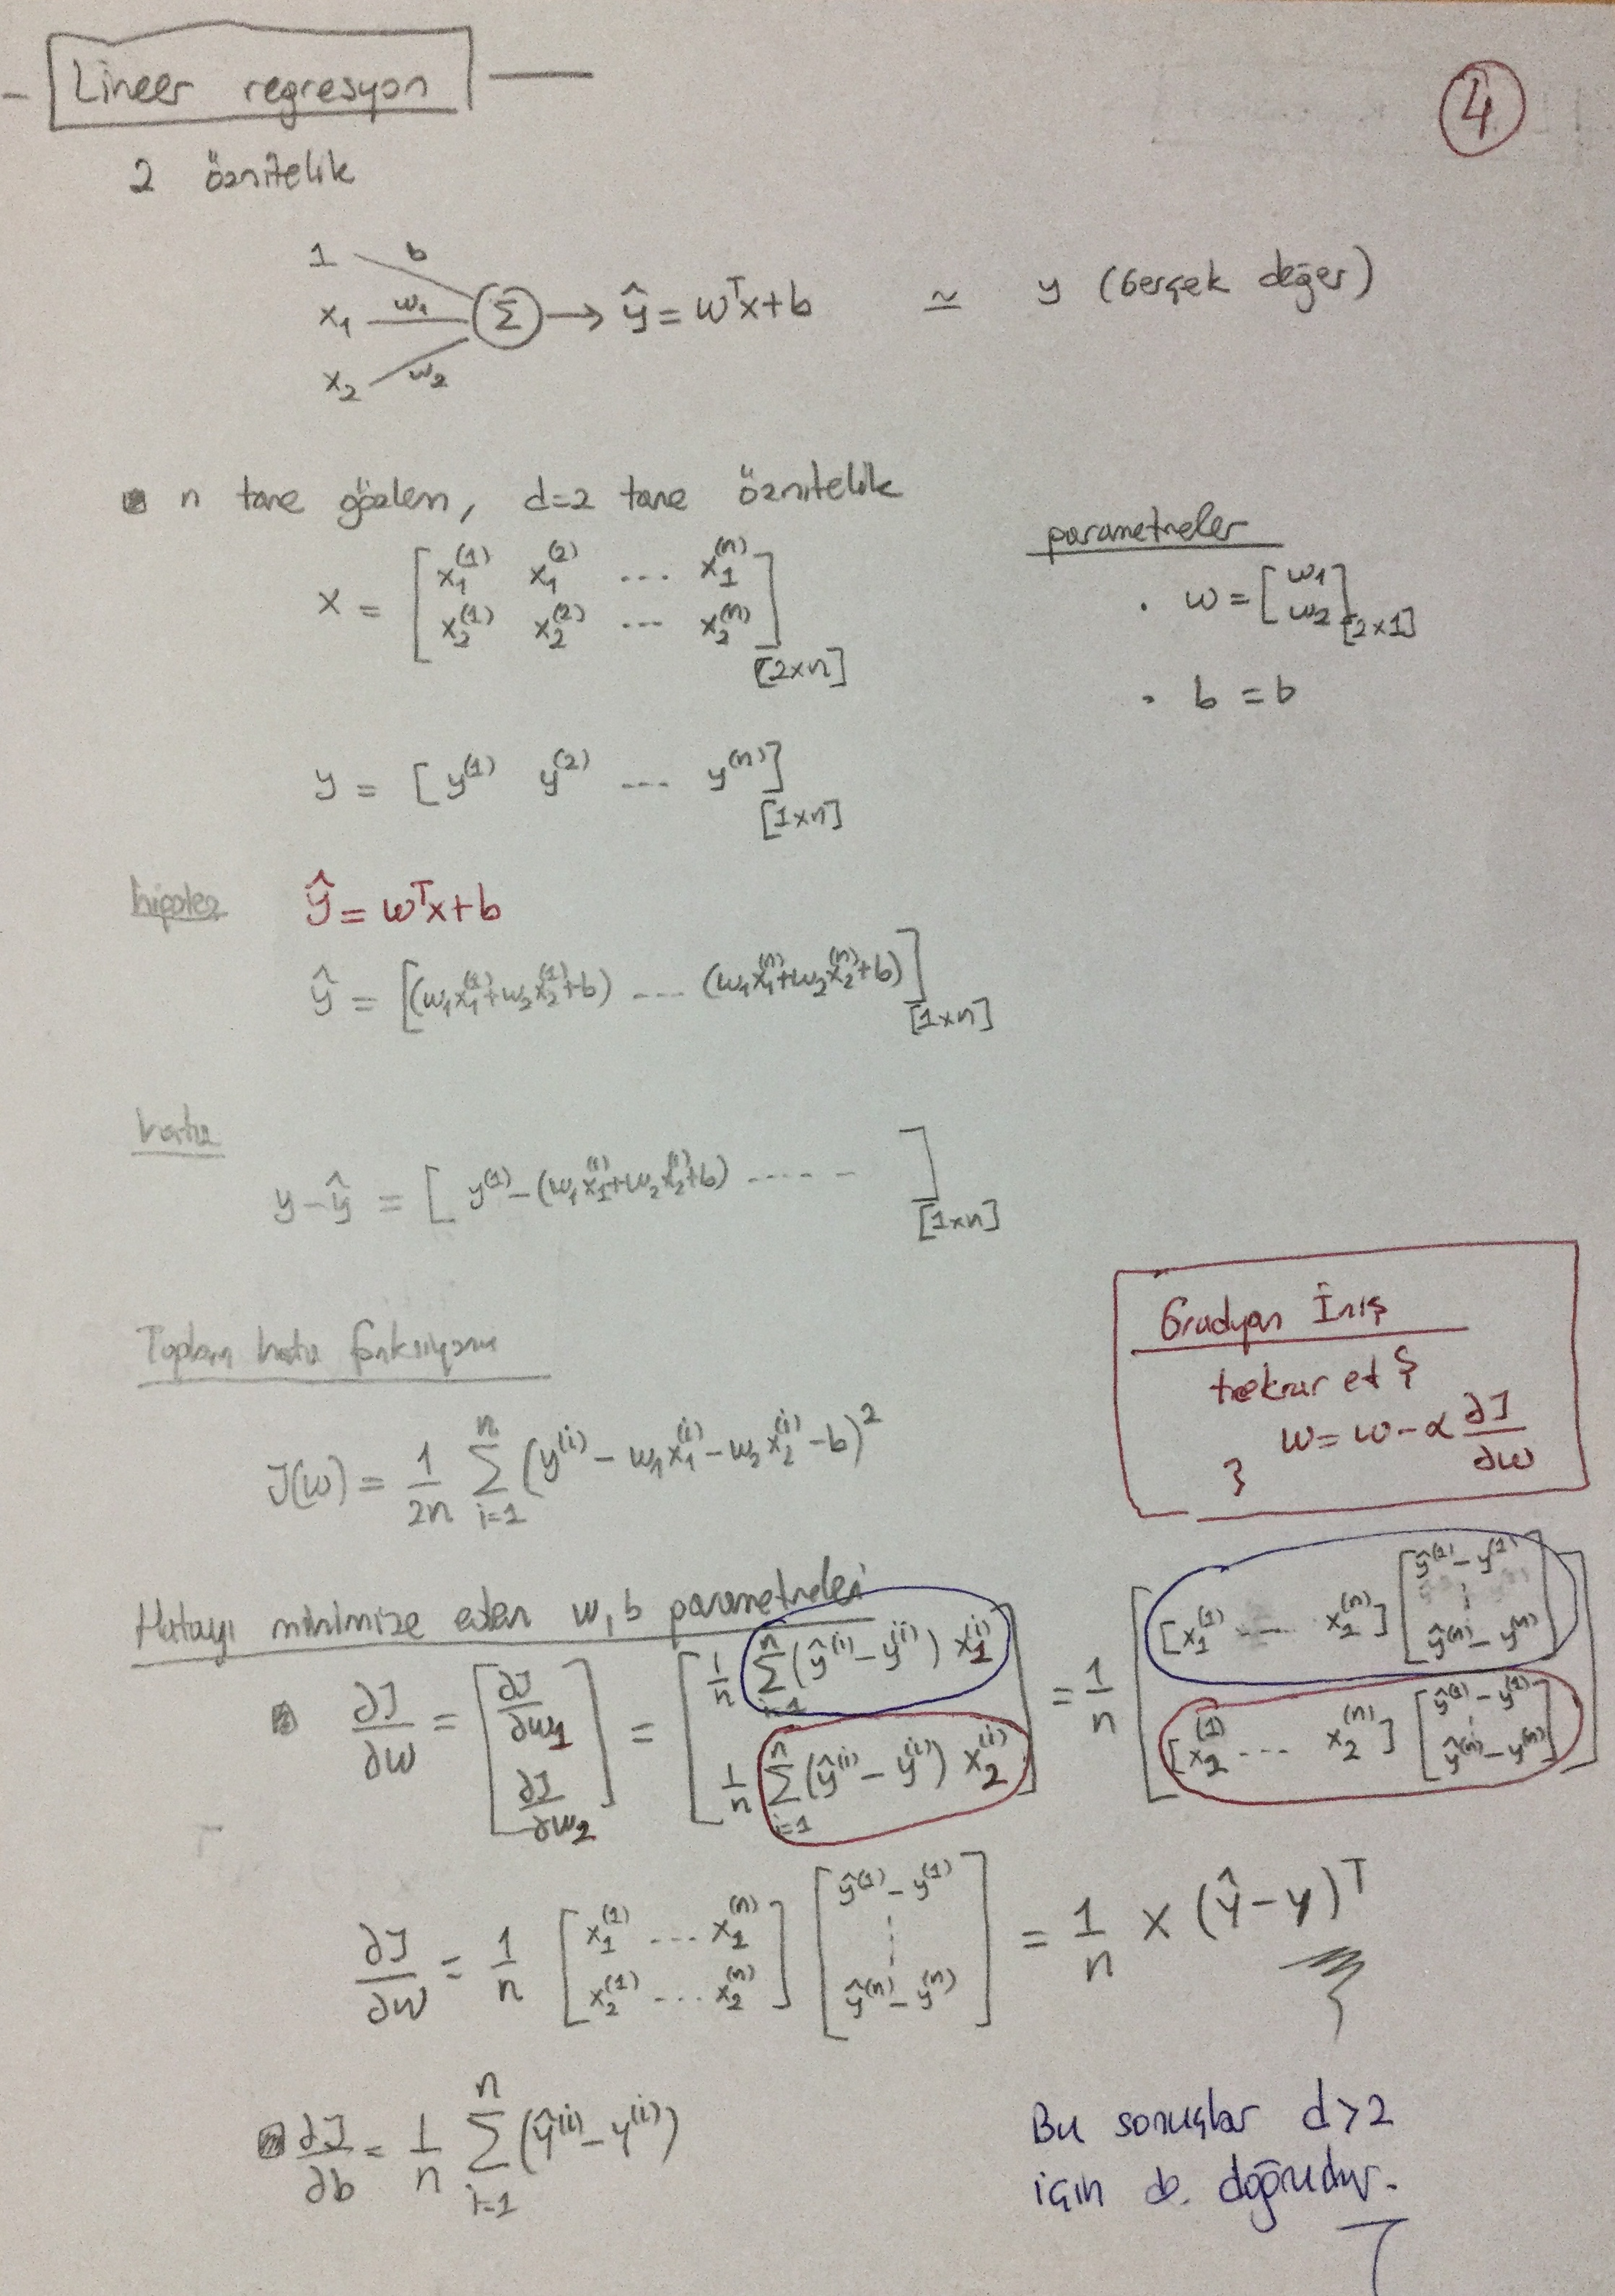 Lineer regresyon
4
2 öznitelik
1 b
x₁ w₁ Σ → ŷ = wᵀx+b ≃ y (Gerçek değer)
x₂ w₂
n tane gözlem, d=2 tane öznitelik
parametreler
x = [x₁⁽¹⁾ x₁⁽²⁾ ... x₁⁽ⁿ⁾
x₂⁽¹⁾ x₂⁽²⁾ ... x₂⁽ⁿ⁾] [2×n]
. w = [w₁
w₂] [2×1]
. b = b
y = [y⁽¹⁾ y⁽²⁾ ... y⁽ⁿ⁾] [1×n]
hipotez ŷ = wᵀx+b
ŷ = [(w₁x₁⁽¹⁾+w₂x₂⁽¹⁾+b) ... (w₁x₁⁽ⁿ⁾+w₂x₂⁽ⁿ⁾+b)] [1×n]
hata
y-ŷ = [y⁽¹⁾-(w₁x₁⁽¹⁾+w₂x₂⁽¹⁾+b) ......] [1×n]
Toplam hata fonksiyonu
J(w) = 1/2n Σᵢ₌₁ⁿ (y⁽ⁱ⁾ - w₁x₁⁽ⁱ⁾ - w₂x₂⁽ⁱ⁾ - b)²
Gradyan İniş
tekrar et {
w = w - α ∂J/∂w
}
Hatayı minimize eden w, b parametreleri
∂J/∂w = [∂J/∂w₁
∂J/∂w₂] = [1/n Σᵢ₌₁ⁿ (ŷ⁽ⁱ⁾ - y⁽ⁱ⁾) x₁⁽ⁱ⁾
1/n Σᵢ₌₁ⁿ (ŷ⁽ⁱ⁾ - y⁽ⁱ⁾) x₂⁽ⁱ⁾] = 1/n [[x₁⁽¹⁾ ... x₁⁽ⁿ⁾] [ŷ⁽¹⁾ - y⁽¹⁾ ⋮ ŷ⁽ⁿ⁾ - y⁽ⁿ⁾]
[x₂⁽¹⁾ ... x₂⁽ⁿ⁾] [ŷ⁽¹⁾ - y⁽¹⁾ ⋮ ŷ⁽ⁿ⁾ - y⁽ⁿ⁾]]
∂J/∂w = 1/n [x₁⁽¹⁾ ... x₁⁽ⁿ⁾
x₂⁽¹⁾ ... x₂⁽ⁿ⁾] [ŷ⁽¹⁾ - y⁽¹⁾ ⋮ ŷ⁽ⁿ⁾ - y⁽ⁿ⁾] = 1/n x (ŷ - y)ᵀ
∂J/∂b = 1/n Σᵢ₌₁ⁿ (ŷ⁽ⁱ⁾ - y⁽ⁱ⁾)
Bu sonuçlar d>2
için de. doğrudur.